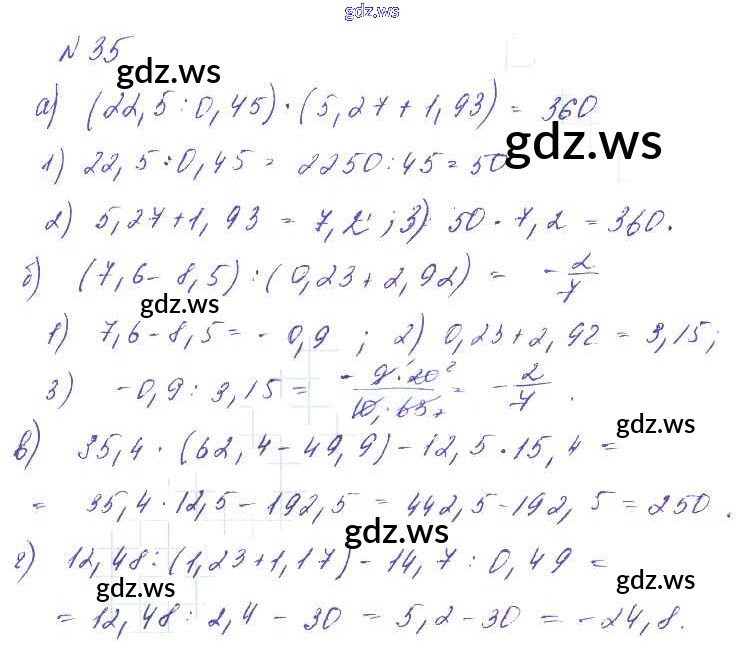 gdz.ws
N 35
gdz.ws
а) (22,5 : 0,45) · (5,27 + 1,93) = 360
gdz.ws
1) 22,5 : 0,45 = 2250 : 45 = 50
2) 5,27 + 1,93 = 7,2 ; 3) 50 · 7,2 = 360.
б) (7,6 - 8,5) : (0,23 + 2,92) = - 2/7
gdz.ws
1) 7,6 - 8,5 = - 0,9 ; 2) 0,23 + 2,92 = 3,15 ;
3) - 0,9 : 3,15 = = - 2/7 .
gdz.ws
в) 35,4 · (62,4 - 49,9) - 12,5 · 15,4 =
= 35,4 · 12,5 - 192,5 = 442,5 - 192,5 = 250 .
gdz.ws
г) 12,48 : (1,23 + 1,17) - 14,7 : 0,49 =
gdz.ws gdz.ws
= 12,48 : 2,4 - 30 = 5,2 - 30 = - 24,8.
gdz.ws